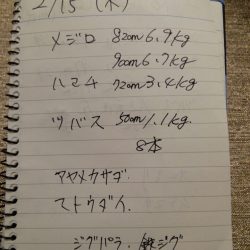 2/15 (木)
メジロ 82cm 6.9kg
90cm 6.7kg
ハマチ 72cm 3.4kg
ツバス 50cm 1.1kg
8本
アヤメカサゴ
マトウダイ
ジグパラ 鉄ジグ